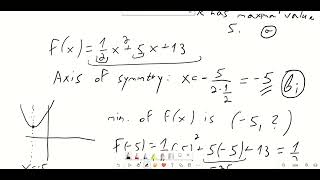 x has maximal value
5.
F(x) = 1/2 x² + 5x + 13
Axis of symmetry: x = - 5/(2·1/2) = -5
min. of f(x) is (-5, ?)
F(-5) = 1/2 (-5)² + 5(-5) + 13 = 1/2
-25
x=-5